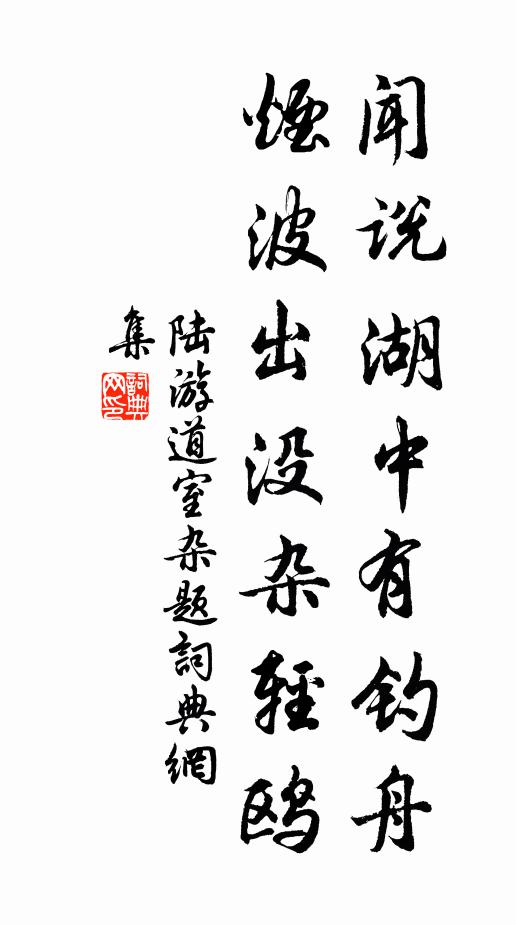 闻说湖中有钓舟
烟波出没杂轻鸥
陆游道室杂题詞典網
集
詞典网印